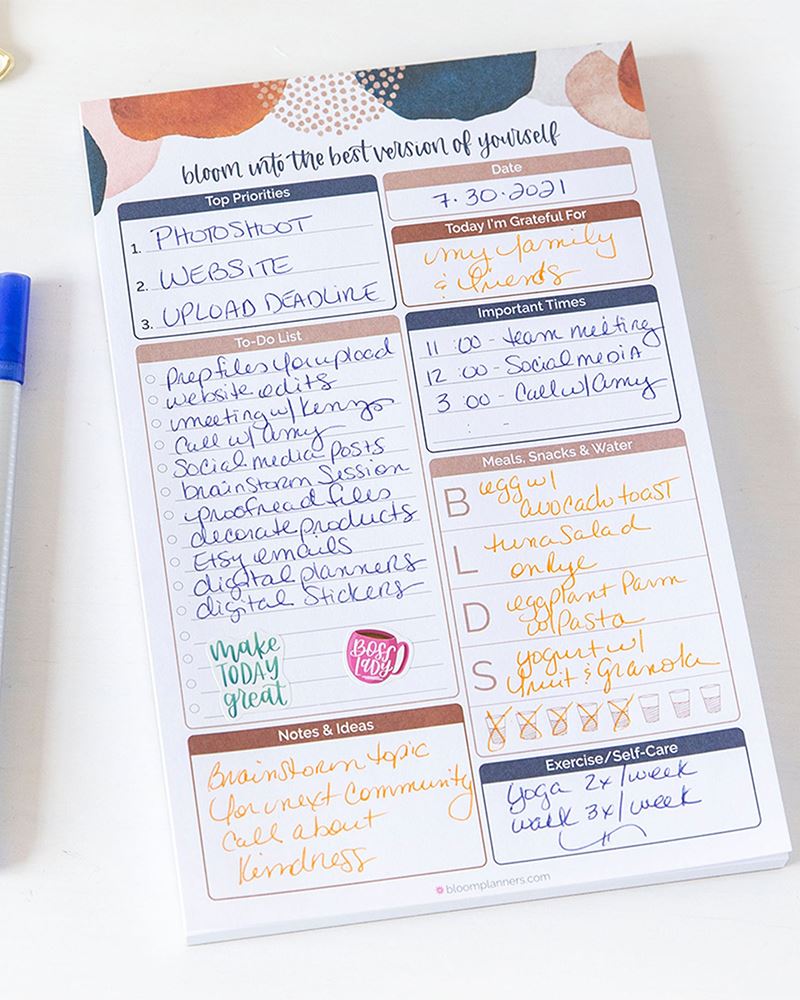 bloom into the best version of yourself
Top Priorities
1. PHOTOSHOOT
2. WEBSITE
3. UPLOAD DEADLINE
Date
7·30·2021
Today I'm Grateful For
my family
& friends
To-Do List
Prep files for upload
website edits
meeting w/ Kenzy
Call w/ Amy
Social media Posts
brainstorm Session
proofread files
decorate products
Etsy emails
digital planners
digital Stickers
make
TODAY
great
BOSS
LADY
Important Times
11 :00 - team meeting
12 :00 - Social media
3 :00 - Call w/ Amy
: -
Meals, Snacks & Water
B egg w/
avocado toast
L tuna Salad
on Rye
D eggplant Parm
w/ Pasta
S yogurt w/
fruit & Granola
Notes & Ideas
Brainstorm topic
for next Community
Call about
Kindness
Exercise/Self-Care
yoga 2x/week
walk 3x/week
bloomplanners.com